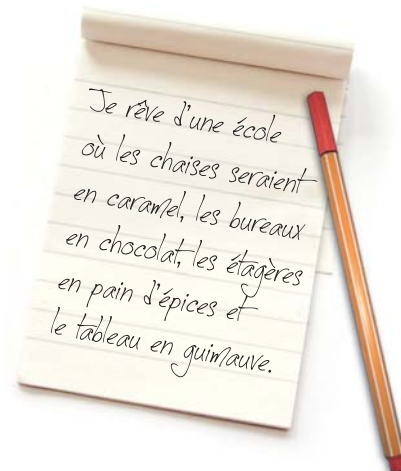 Je rêve d'une école
où les chaises seraient
en caramel, les bureaux
en chocolat, les étagères
en pain d'épices et
le tableau en guimauve.